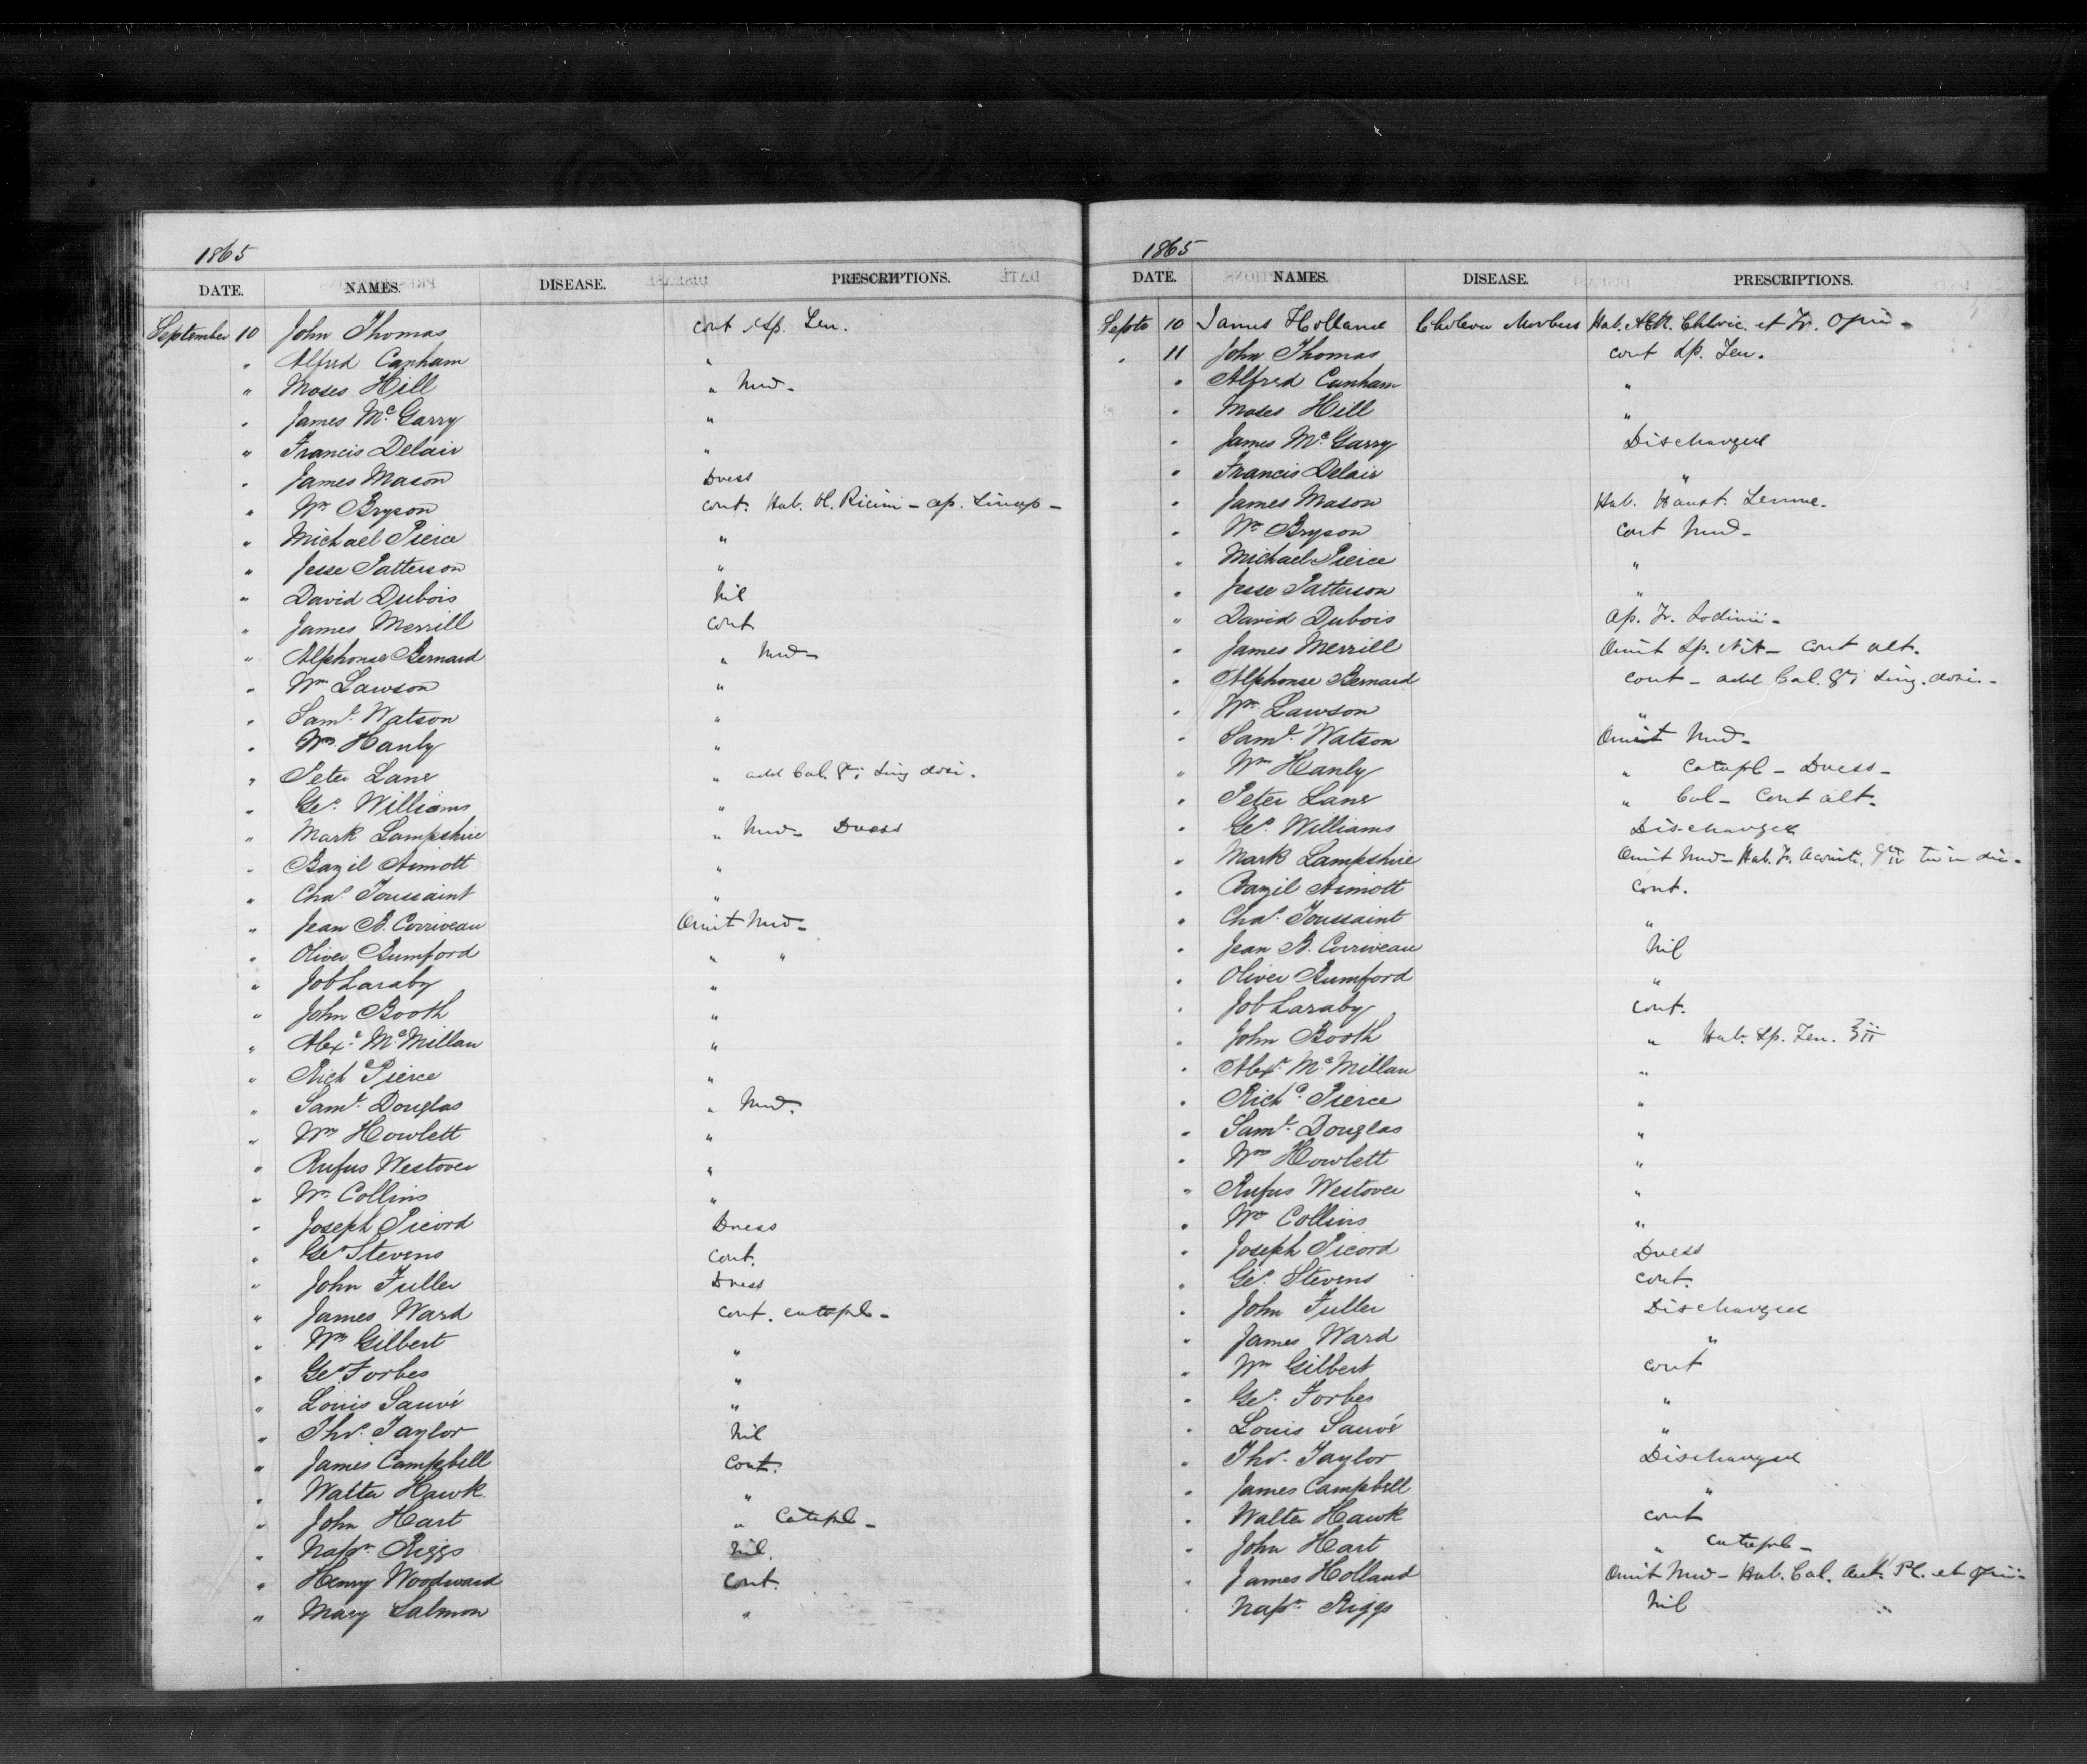 1865
DATE. NAMES. DISEASE. PRESCRIPTIONS.
September 10 John Thomas cont Sp. Len.
" Alfred Canham "
" Moses Hill " Med-
" James McGarry "
" Francis Delair "
" James Mason Dress
" Wm Bryson cont. Hab. Ol. Ricini - ap. Sinap -
" Michael Pierce "
" Jesse Patterson "
" David Dubois Nil
" James Merrill Cont
" Alphonse Bernard " Med-
" Wm Lawson "
" Saml. Watson "
" Wm Hanly "
" Peter Lane " add Cal. gr i Sing dosi.
" Geo. Williams "
" Mark Lampshire " Med- Dress
" Bazil Aimott "
" Chas. Toussaint "
" Jean B. Corriveau Omit Med-
" Oliver Rumford " "
" Job Laraby "
" John Booth "
" Alexr. McMillan "
" Richd Pierce "
" Saml. Douglas " Med.
" Wm Howlett "
" Rufus Westover "
" Wm Collins "
" Joseph Picord Dress
" Geo Stevens Cont.
" John Fuller Dress
" James Ward Cont. catapl-
" Wm Gilbert "
" Geo Forbes "
" Louis Sauvé "
" Thos. Taylor Nil
" James Campbell Cont.
" Walter Hawk "
" John Hart " Catapl-
" Napn. Riggs Nil.
" Henry Woodward Cont.
" Mary Salmon "
1865
DATE. NAMES. DISEASE. PRESCRIPTIONS.
Septr 10 James Holland Cholera Morbus Hab. Chloric. et Tr. Opii-
" 11 John Thomas cont Sp. Len.
" Alfred Canham "
" Moses Hill "
" James McGarry Discharged
" Francis Delair "
" James Mason Hab. Haust. Sennae.
" Wm Bryson Cont Med-
" Michael Pierce "
" Jesse Patterson "
" David Dubois Ap. Tr. Iodinii-
" James Merrill Omit Sp. Nit- Cont alt.
" Alphonse Bernard cont- add Cal. gr i Sing. dosi-
" Wm Lawson "
" Saml. Watson Omit Med-
" Wm Hanly " Catapl- Dress-
" Peter Lane " Cal- Cont alt-
" Geo. Williams Discharged
" Mark Lampshire Omit Med- Hab. Tr. Aconiti, gtt ii ter in die-
" Bazil Aimott Cont.
" Chas. Toussaint "
" Jean B. Corriveau Nil
" Oliver Rumford "
" Job Laraby Cont.
" John Booth " Hab. Sp. Len. ʒii
" Alexr. McMillan "
" Richd. Pierce "
" Saml. Douglas "
" Wm Howlett "
" Rufus Westover "
" Wm Collins "
" Joseph Picord Dress
" Geo. Stevens Cont.
" John Fuller Discharged
" James Ward "
" Wm Gilbert cont
" Geo. Forbes "
" Louis Sauvé "
" Thos. Taylor Discharged
" James Campbell "
" Walter Hawk cont
" John Hart " catapl-
" James Holland Omit Med- Hab. Cal. Pl. et Opii-
" Napn. Riggs Nil